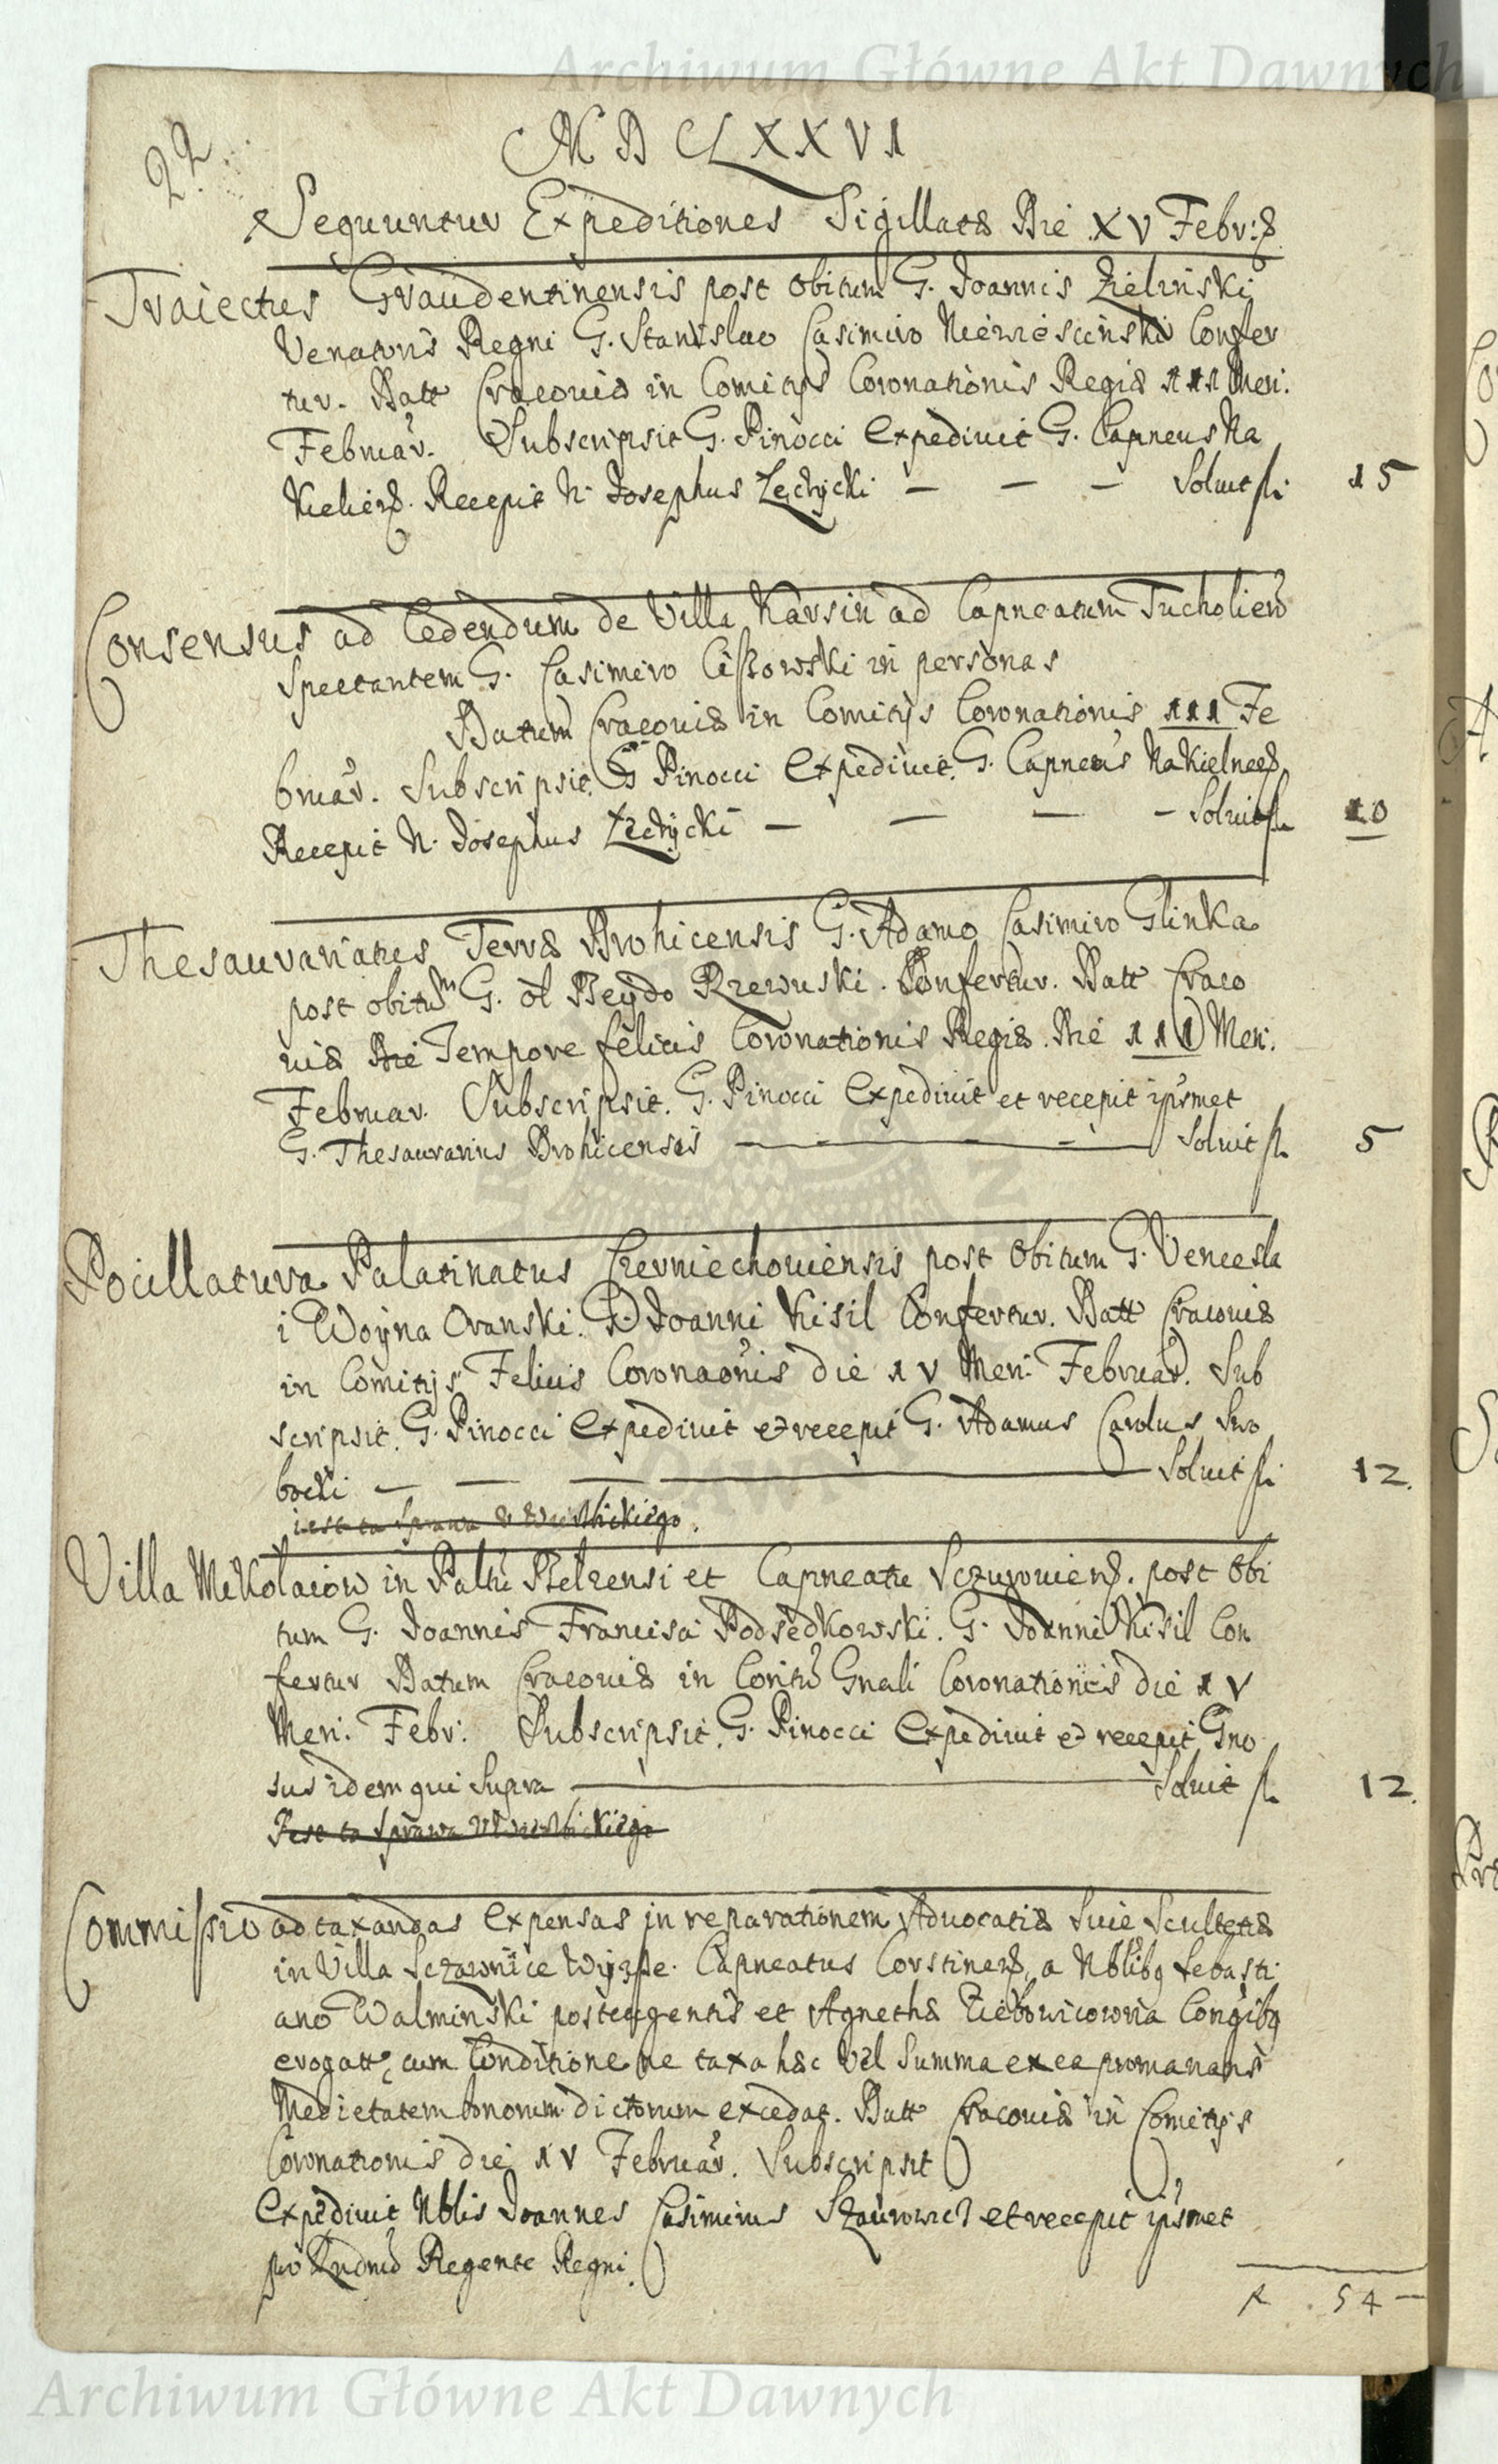 Archiwum Główne Akt Dawnych
22
MDCLXXVI
Sequuntur Expeditiones Sigillatæ Die XV Febr:æ
Traiectus Graudentinensis post obitum G. Joannis Zielinski
Venatoris Regni G. Stanislao Casimiro Niewiescinski Confer
tur. Datt Cracouiæ in Comitijs Coronationis Regiæ 111 Men:
Februar. Subscripsit G. Pinocci Expediuit G. Capneus Na
Kielens. Recepit N. Josephus Łęczycki — — — Soluit fl: 15
Consensus ad Cedendum de Villa Karsin ad Capneatum Tucholien
Spectantem G. Casimiro Ciszowski in personas
Datum Cracouiæ in Comitijs Coronationis 111 Fe
bruar. Subscripsit G Pinocci Expediuit G. Capneus Nakielnens
Recepit N. Josephus — — — — Soluit fl. 10
Thesaurariatus Terræ Drohicensis G. Adamo Casimiro Glinka
post obitum G. ol Beydo Rzewuski. Confertur. Datt Craco
uiæ Die Tempore felicis Coronationis Regiæ. Die 111 Men:
Februar. Subscripsit. G. Pinocci Expediuit et recepit ipsmet
G. Thesaurarius Drohicensis — Soluit fl. 5
Pocillatura Palatinatus Czerniechouiensis post obitum G. Vencesla
i Woyna Oranski. G. Joanni Kisil Confertur. Datt Cracouiæ
in Comitijs Felicis Coronaonis die 1V Men: Februar. Sub
scripsit. G. Pinocci Expediuit et recepit G. Adamus Carolus Swo
bocki — — — Soluit fl: 12.
iest ta Sprawa
Villa Mikolaiow in Paltu Belzensi et Capneatu Sczurouiens. post Obi
tum G. Joannis Francisci Podsedkowski. G. Joanni Kisil Con
fertur Datum Cracouiæ in Gnali Coronationis die 1V
Men: Febr: Subscripsit. G. Pinocci Expediuit et recepit Gno
sus idem qui Supra — Soluit fl. 12.
Jest ta Sprawa
Commissio ad taxandas expensas in reparationem Aduocatiæ Siue Scultetiæ
in Villa Sczawnice Wyzsze. Capneatus Corstinens, a Nblibq Sebasti
ano Walminski et Agnethæ Congibq
erogatt, cum Conditione ne taxa hæc Vel Summa ex ea promanans
Medietatem bonorum dictorum excedat. Datt Cracouiæ in Comitijs
Coronationis die 1V Februar. Subscripsit ( )
Expediuit Nblis Joannes Casimirus et recepit ipsmet
pro Rndmo Regente Regni.
54 —
Archiwum Główne Akt Dawnych